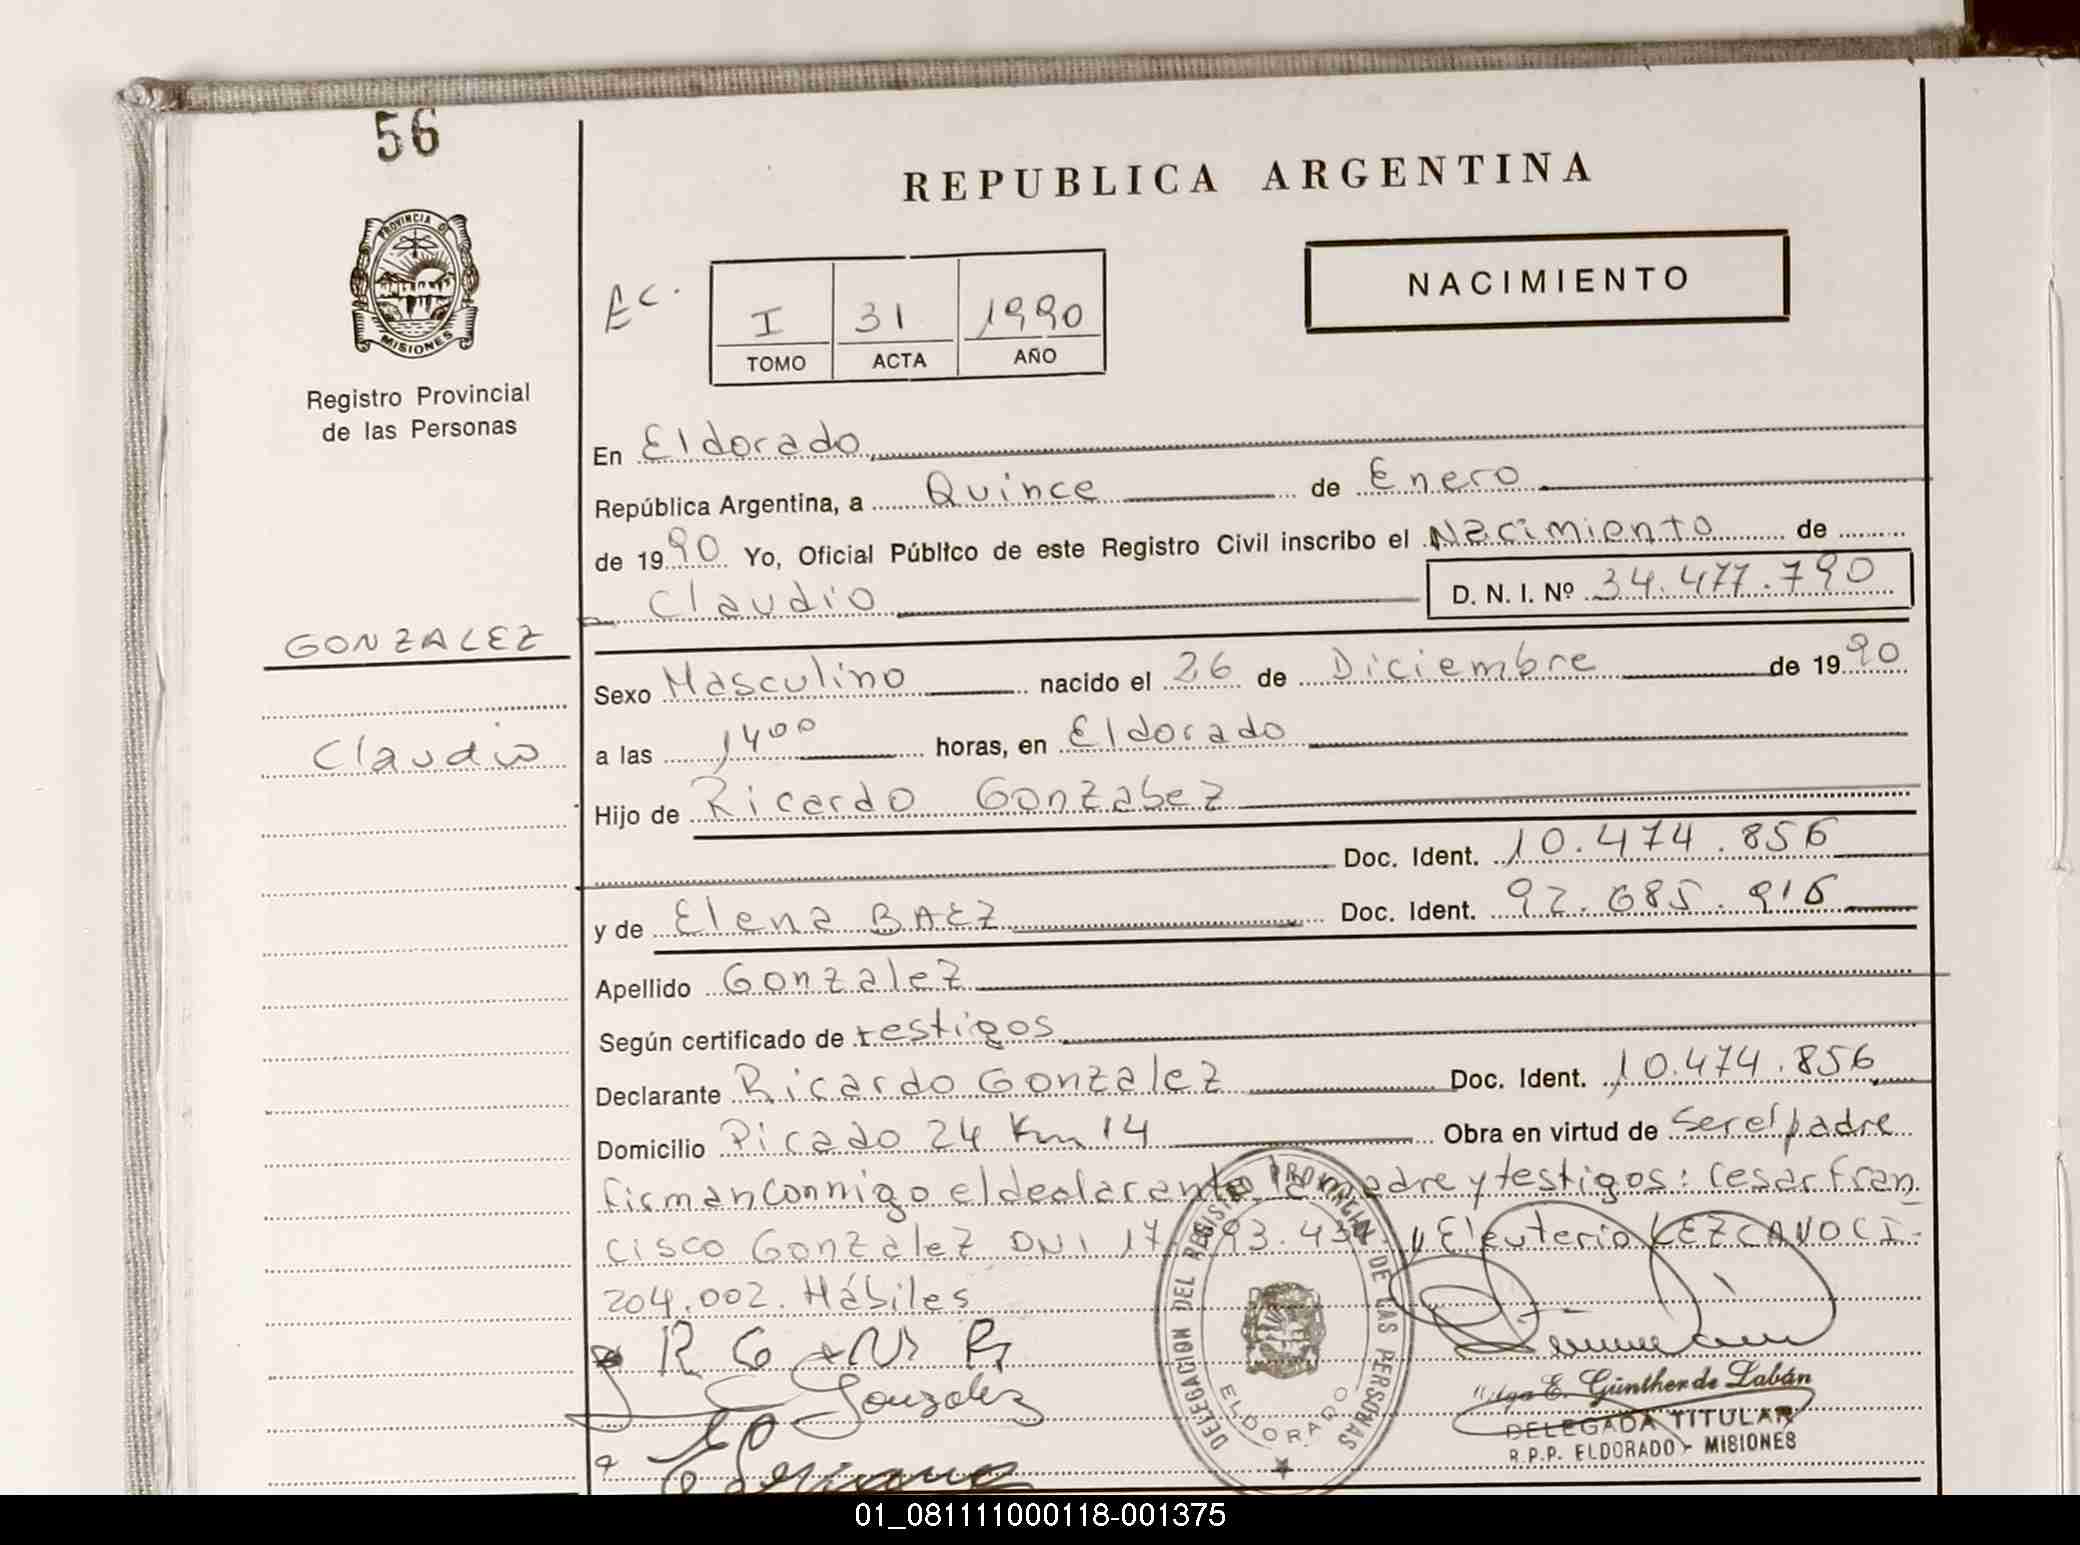 56
REPUBLICA ARGENTINA
PROVINCIA DE
MISIONES
Registro Provincial
de las Personas
NACIMIENTO
I 31 1990
TOMO ACTA AÑO
En Eldorado
República Argentina, a Quince de Enero
de 1990 Yo, Oficial Público de este Registro Civil inscribo el Nacimiento de
Claudio D. N. I. Nº 34.477.790
GONZALEZ
Claudio
Sexo Masculino nacido el 26 de Diciembre de 1990
a las 1400 horas, en Eldorado
Hijo de Ricardo Gonzabez
Doc. Ident. 10.474.856
y de Elena BAEZ Doc. Ident. 92.685.916
Apellido Gonzalez
Según certificado de testigos
Declarante Ricardo Gonzalez Doc. Ident. 10.474.856
Domicilio Picado 24 Km 14 Obra en virtud de ser el padre
firman conmigo el declarante la madre y testigos: Cesar Fran
cisco Gonzalez DNI 17. 93.434 y Eleuterio LEZCANO C I.
204.002. Hábiles
Gonzalez
DELEGACION DEL REGISTRO PROVINCIAL DE LAS PERSONAS
ELDORADO
E. Günther de Labán
DELEGADA TITULAR
R.P.P. ELDORADO - MISIONES
01_081111000118-001375